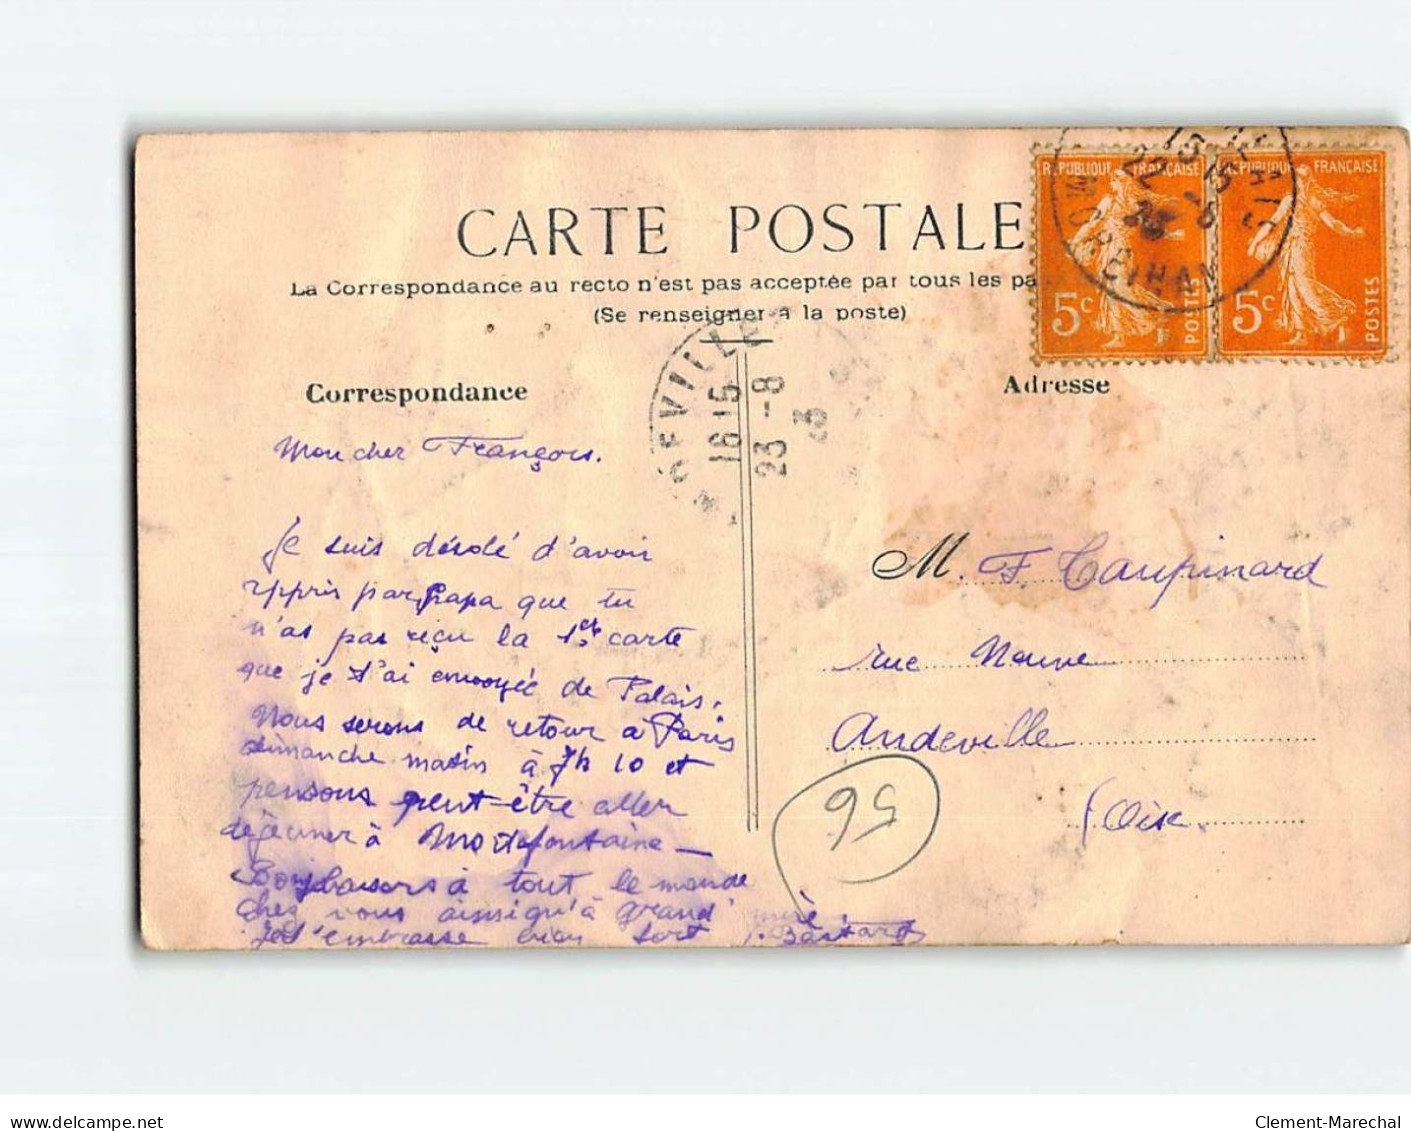 CARTE POSTALE
La Correspondance au recto n'est pas acceptée par tous les pa
(Se renseigner à la poste)
REPUBLIQUE FRANÇAISE
5c
POSTES
REPUBLIQUE FRANÇAISE
5c
POSTES
MORBIHAN
15
22 -8
23
Correspondance
Adresse
DEVILLE
16 15
23 -8
23
Mon cher François.
Je suis désolé d'avoir
appris par papa que tu
n'as pas reçu la 1ère carte
que je t'ai envoyée de Palais.
Nous serons de retour à Paris
dimanche matin à 7h 10 et
pensons peut-être aller
déjeuner à Mortefontaine —
Bons baisers à tout le monde
chez vous ainsi qu'à grand'mère
Je t'embrasse bien fort
M. F. Taupinard
rue Neuve
Andeville
(Oise
56
delcampe.net
Clement-Marechal